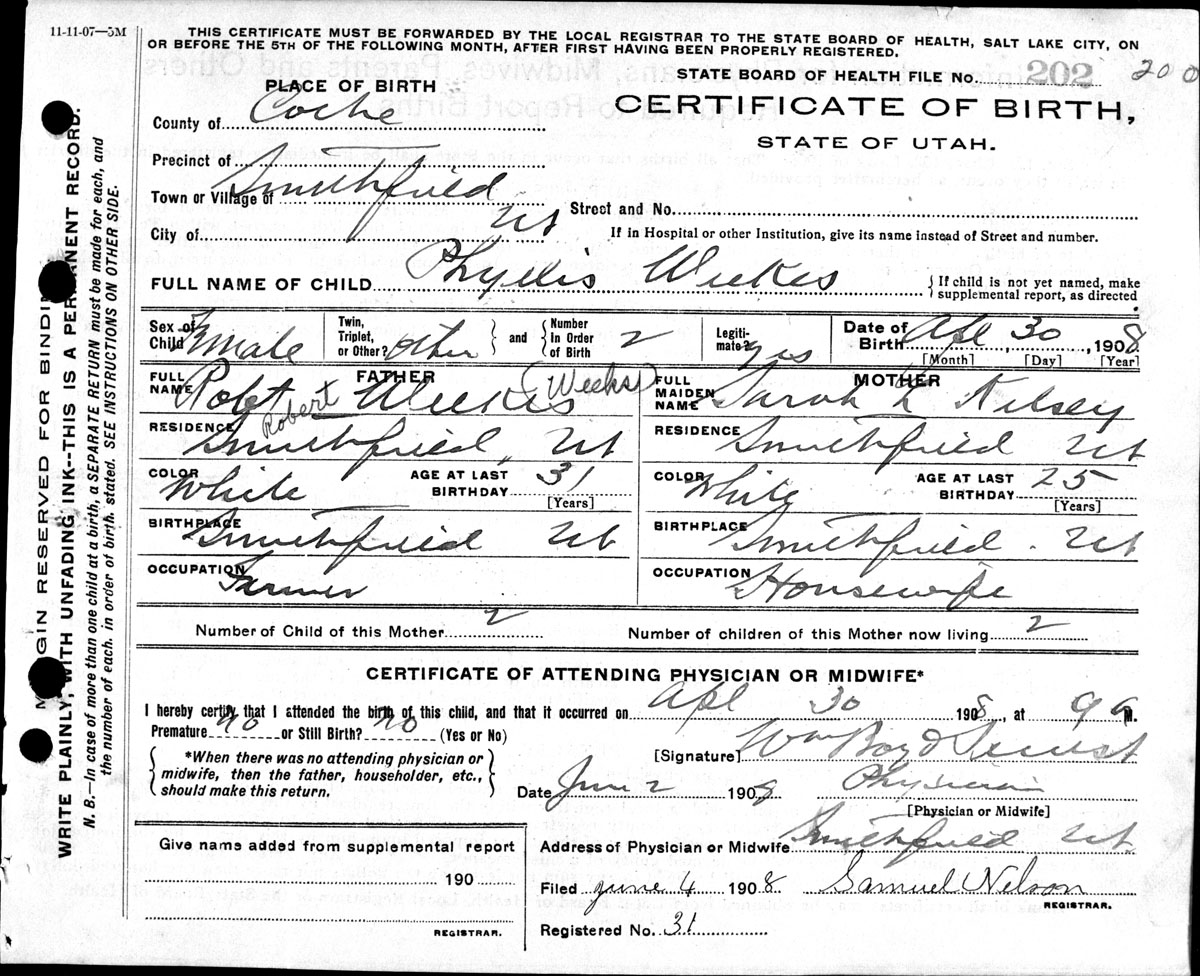 11-11-07—5M
THIS CERTIFICATE MUST BE FORWARDED BY THE LOCAL REGISTRAR TO THE STATE BOARD OF HEALTH, SALT LAKE CITY, ON
OR BEFORE THE 5TH OF THE FOLLOWING MONTH, AFTER FIRST HAVING BEEN PROPERLY REGISTERED.
STATE BOARD OF HEALTH FILE No. 202 200
PLACE OF BIRTH
CERTIFICATE OF BIRTH,
STATE OF UTAH.
County of Cache
Precinct of
Town or Village of Smithfield
Street and No.
City of Ut
If in Hospital or other Institution, give its name instead of Street and number.
FULL NAME OF CHILD Phyllis Weekes { If child is not yet named, make supplemental report, as directed
Sex of Child Female Twin, Triplet, or Other? other and Number In Order of Birth 2 Legitimate? yes Date of Birth Apl 30 1908
[Month] [Day] [Year]
FATHER MOTHER
FULL NAME Robt Weekes (Weeks) FULL MAIDEN NAME Sarah L Kelsey
Robert
RESIDENCE Smithfield, Ut RESIDENCE Smithfield Ut
COLOR White AGE AT LAST BIRTHDAY 31 [Years] COLOR White AGE AT LAST BIRTHDAY 25 [Years]
BIRTHPLACE Smithfield Ut BIRTHPLACE Smithfield. Ut
OCCUPATION Farmer OCCUPATION Housewife
Number of Child of this Mother 2 Number of children of this Mother now living 2
CERTIFICATE OF ATTENDING PHYSICIAN OR MIDWIFE*
I hereby certify that I attended the birth of this child, and that it occurred on Apl 30 1908, at 9 a M.
Premature no or Still Birth? no (Yes or No)
*When there was no attending physician or midwife, then the father, householder, etc., should make this return.
[Signature] Wm Boyd
Date June 2 1908 Physician
[Physician or Midwife]
Address of Physician or Midwife Smithfield Ut.
Give name added from supplemental report
190
REGISTRAR.
Filed June 4 1908 Samuel Nelson
REGISTRAR.
Registered No. 31
MARGIN RESERVED FOR BINDING
WRITE PLAINLY, WITH UNFADING INK--THIS IS A PERMANENT RECORD.
N. B.—In case of more than one child at a birth, a SEPARATE RETURN must be made for each, and
the number of each, in order of birth, stated. SEE INSTRUCTIONS ON OTHER SIDE.